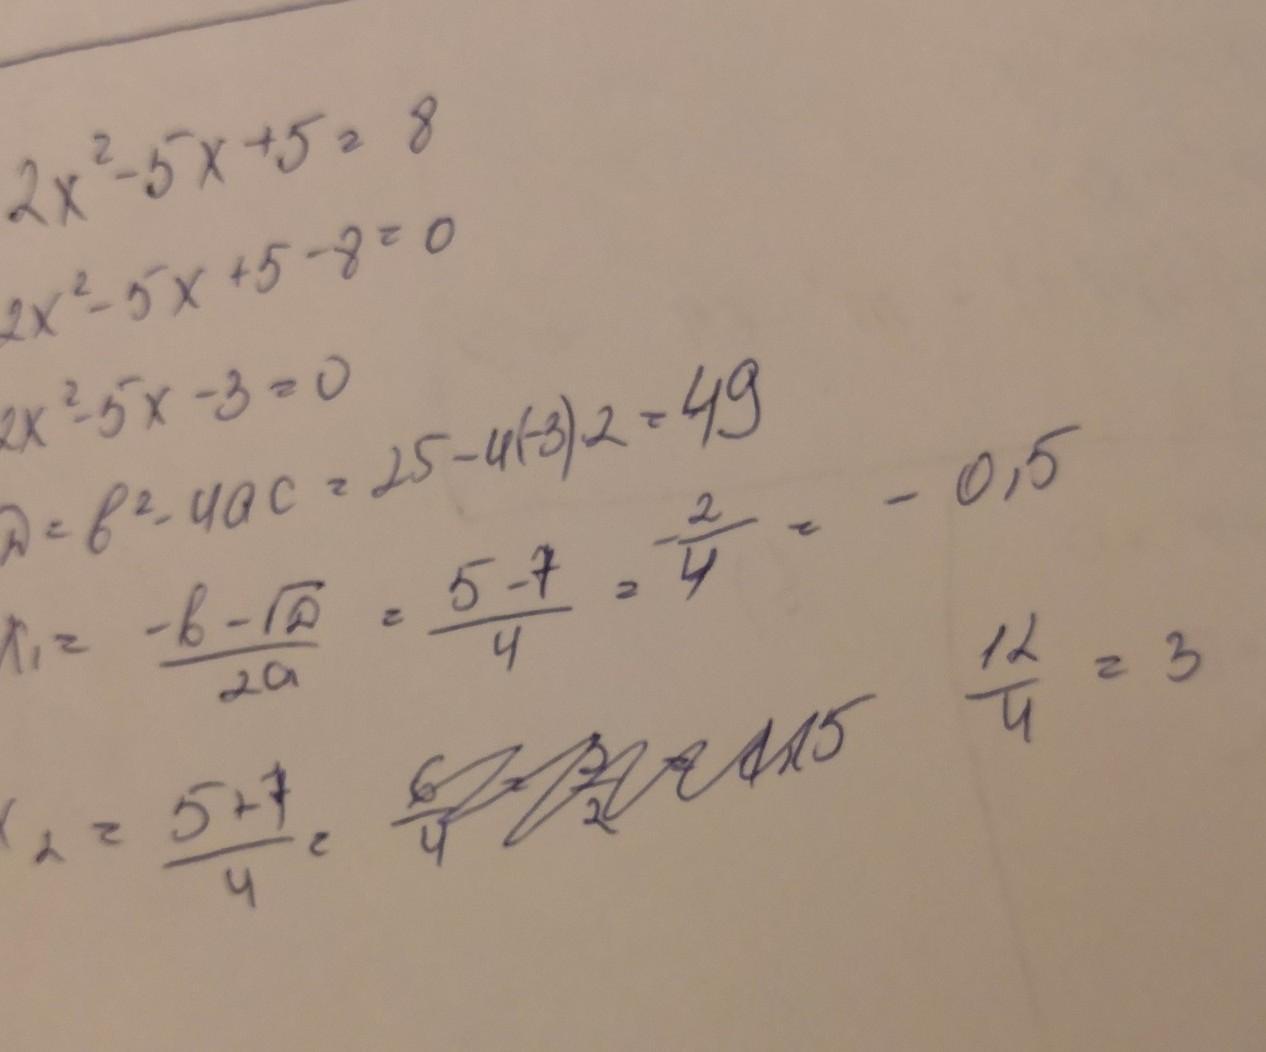 2x² - 5x + 5 = 8
2x² - 5x + 5 - 8 = 0
2x² - 5x - 3 = 0
D = b² - 4ac = 25 - 4(-3)·2 = 49
x₁ = (-b - √D)/(2a) = (5 - 7)/4 = -2/4 = -0,5
x₂ = (5 + 7)/4 = 6/4 12/4 = 3